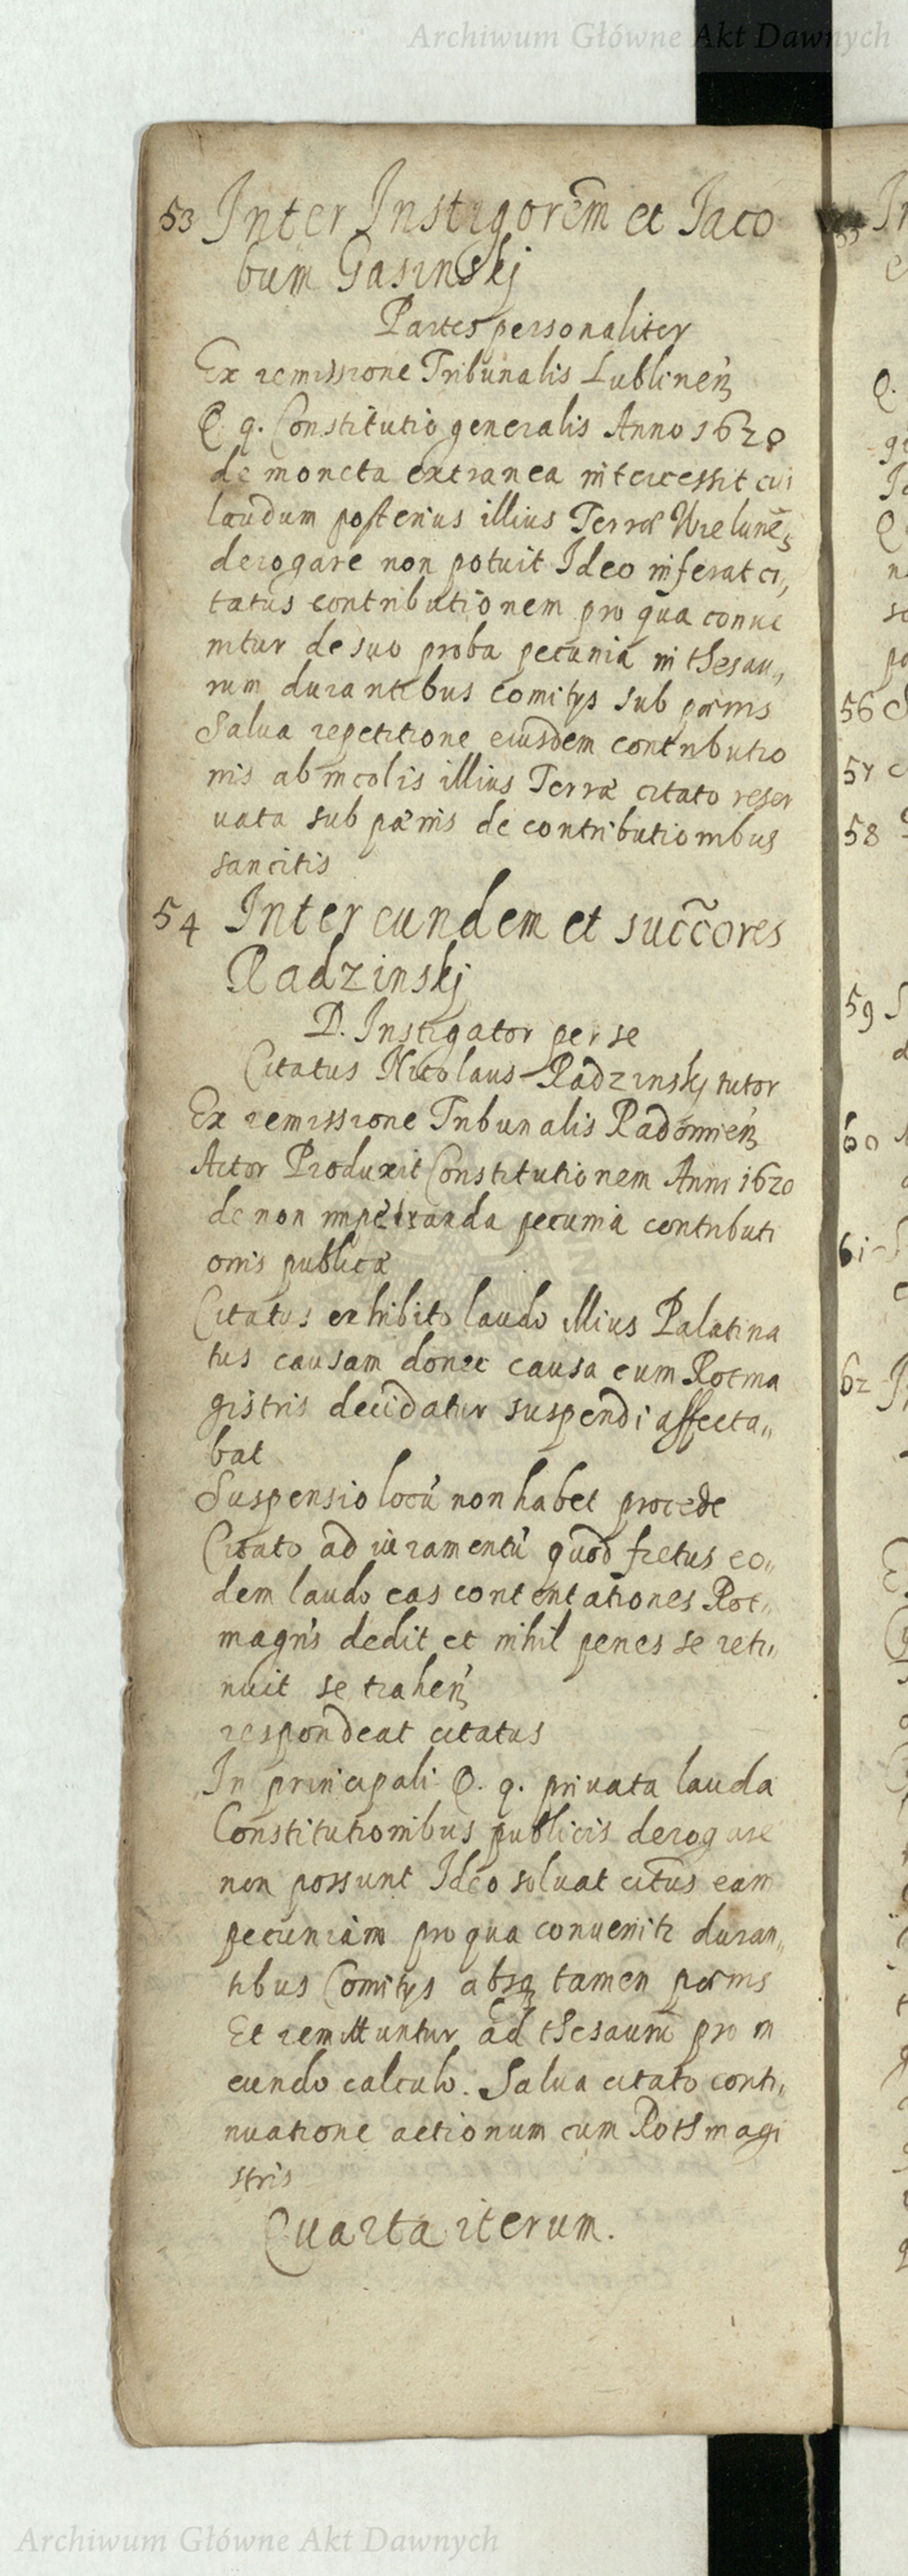 Archiwum Główne Akt Dawnych
53 Inter Instigorem et Iaco
bum Gasinskj
Partes personaliter
Ex remissione Tribunalis Lublineń
Q. q. Constitutio generalis Anno 1620
de moneta extranea intercessit cui
laudum posterius illius Terræ Wieluneń
derogare non potuit Ideo inferat ci„
tatus contributionem pro qua conue
nitur de suo proba pecunia in thesau„
rum durantibus comitys sub pœnis
Salua repetitione eiusdem contributio
nis ab incolis illius Terræ citato reser
uata sub pœnis de contributionibus
sancitis
54 Inter eundem et succ̃ores
Radzinskj
D. Instigator per se
Citatus Nicolaus Radzinskj tutor
Ex remissione Tribunalis Radomień
Actor Produxit Constitutionem Anni 1620
de non impetranda pecunia contributi
onis publicæ
Citatus exhibito laudo illius Palatina
tus causam donec causa cum Rotma
gistris decidatur suspendi affecta„
bat
Suspensio locū non habet procede
Citato ad iuramentū quod fretus eo„
dem laudo eas contentationes Rot„
magris dedit et nihil penes se reti„
nuit se traheń
respondeat citatus
In principali Q. q. priuata lauda
Constitutionibus publicis derogare
non possunt Ideo soluat citus eam
pecuniam pro qua conuenitr duran„
tibus Comitys absq tamen pœnis
Et remittuntur ad thesaurū pro in
eundo calculo. Salua citato conti„
nuatione actionum cum Rothmagi
stris
Quarta iterum.
56
57
58
59
60
61
62
Archiwum Główne Akt Dawnych